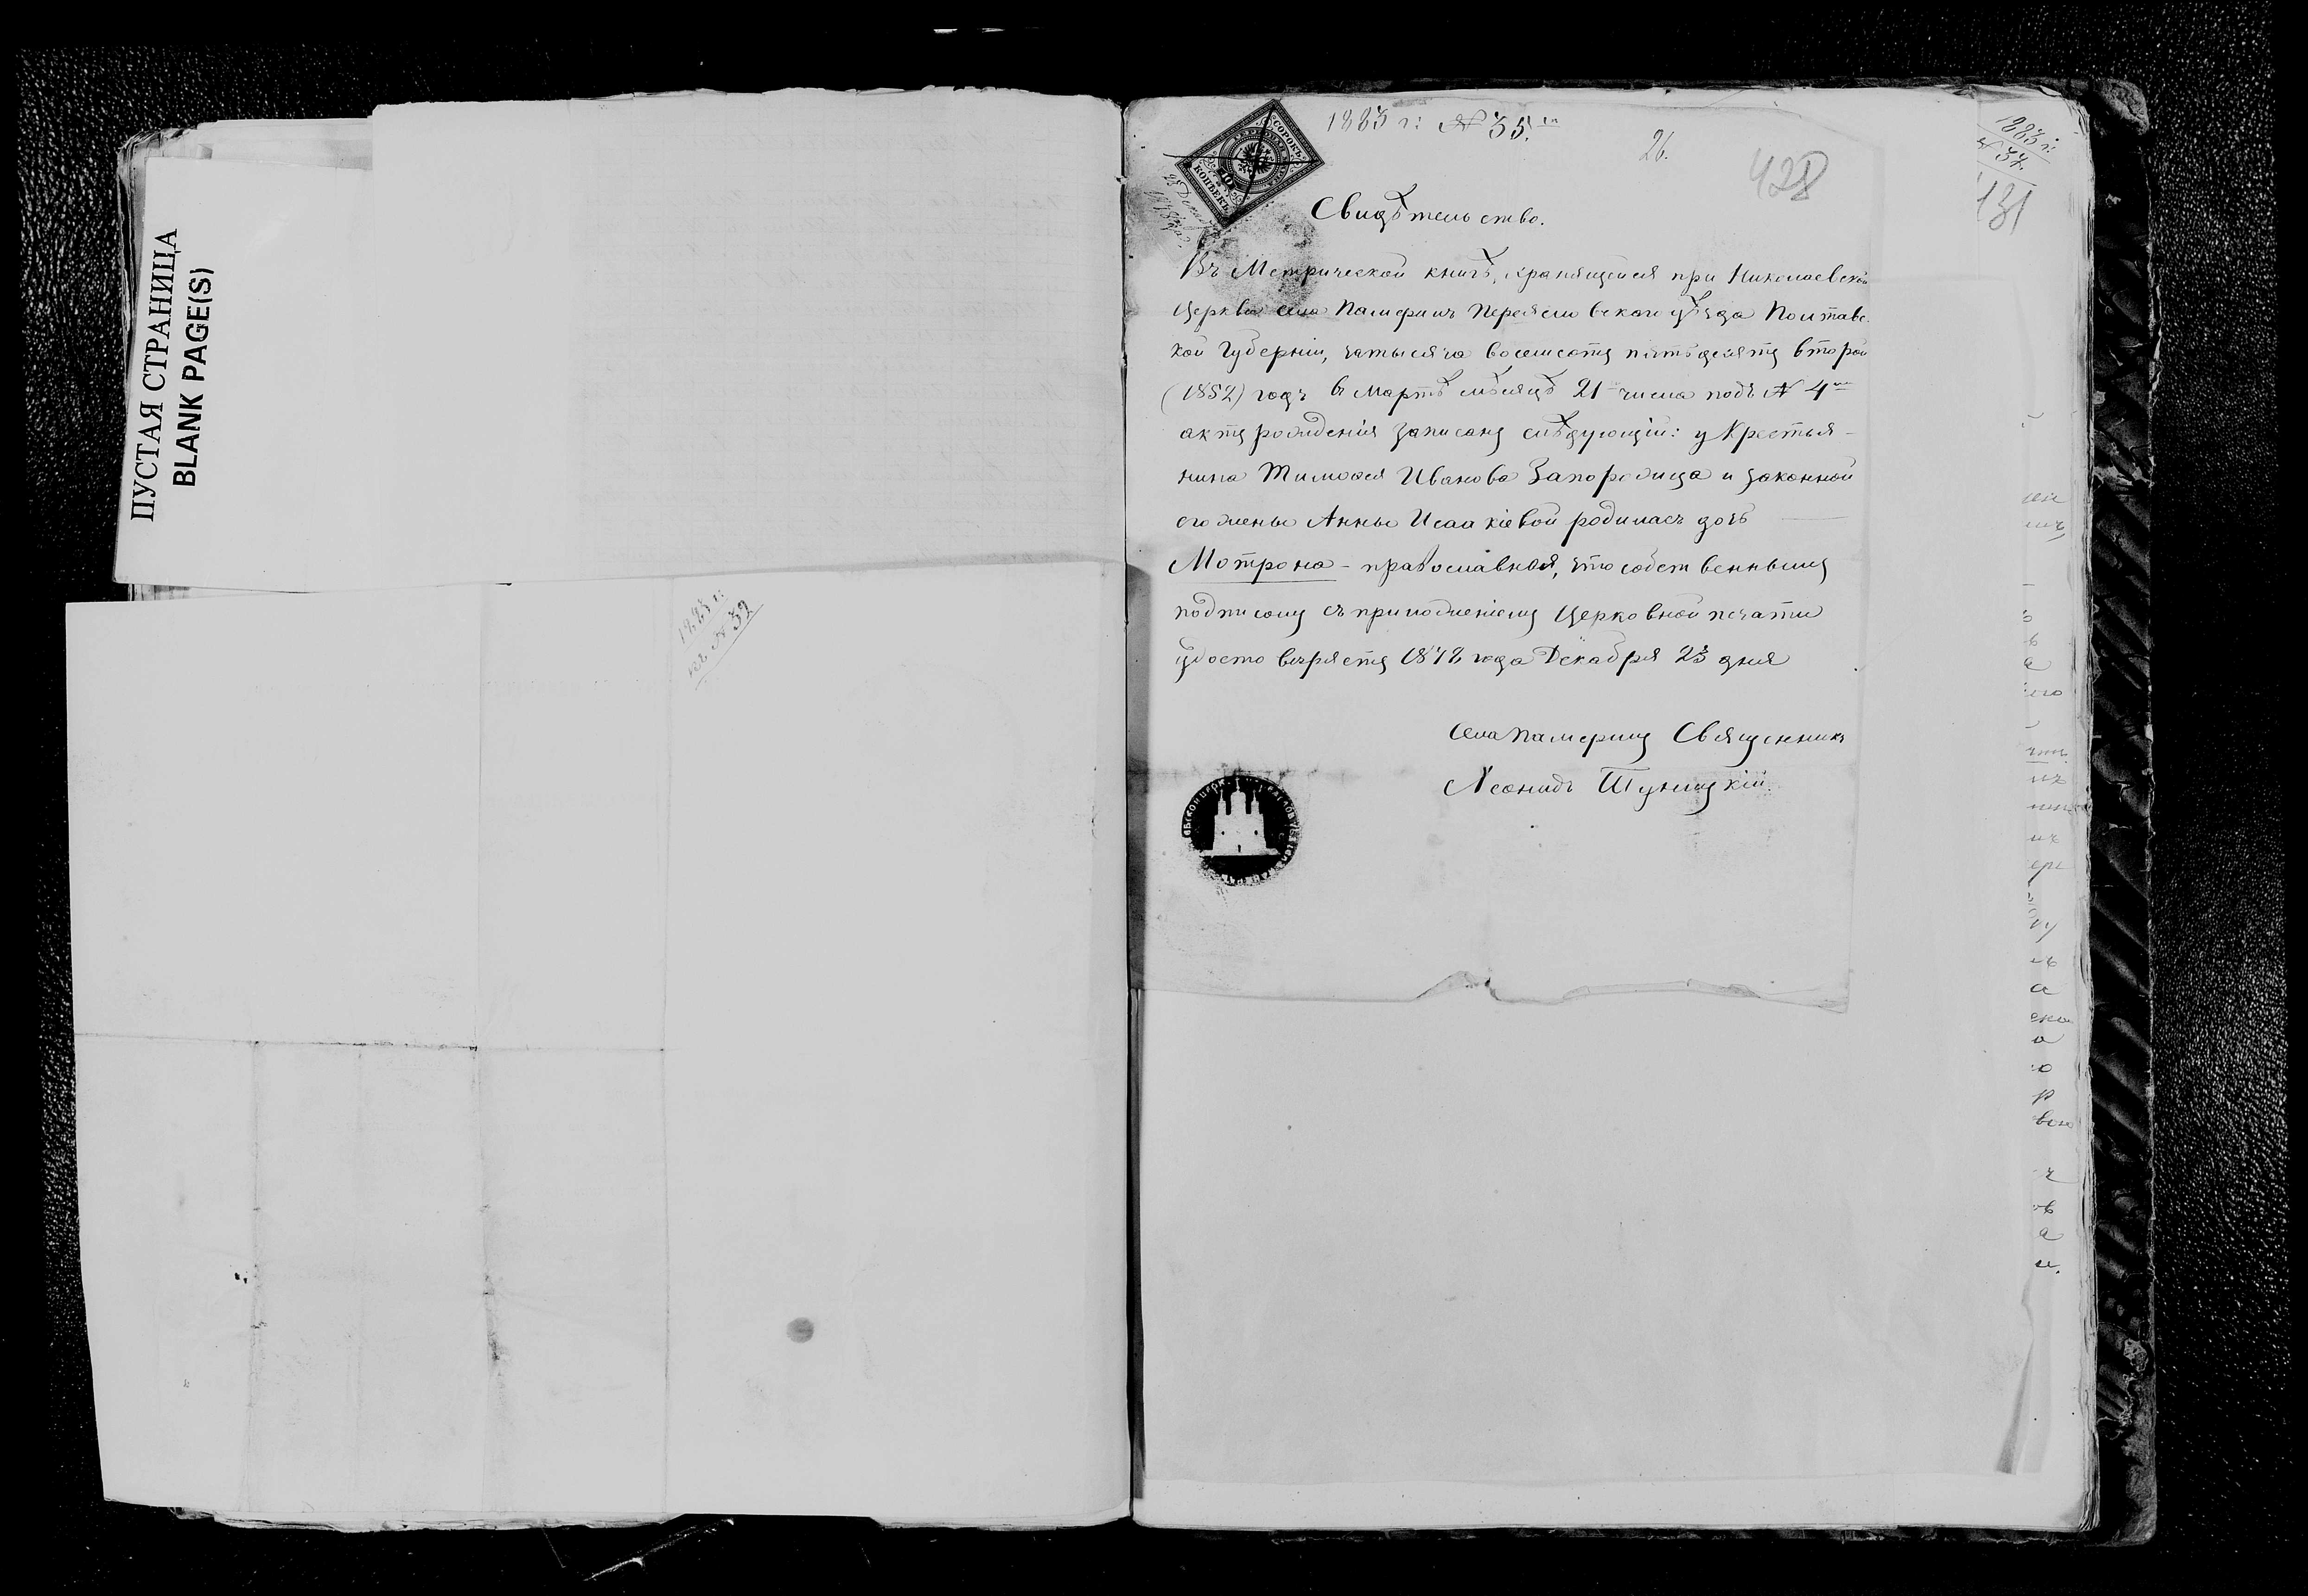 ПУСТАЯ СТРАНИЦА
BLANK PAGE(S)
1883 г:
къ № 37
1883 г: № 35.
26.
428
1883 г:
№ 37.
131
СОРОКЪ
40
КОПѢЕКЪ
Свидѣтельство.
Въ Метрической книгѣ, хранящейся при Николаевской
Церкви села Переяславского уѣзда Полтавс-
кой Губерніи, за тысяча восемсотъ пятьдесятъ второй
(1852) годъ въ Мартѣ мѣсяцѣ 21 числа подъ № 4
актъ рожденія записанъ слѣдующій: у Крестья-
нина Тимоѳея Иванова Запорожца и законной
его жены Анны Исаакіевой родилась дочь
Мотрона - православная, что собственнымъ
подписомъ съ приложеніемъ Церковной печати
удостовѣряетъ 1878 года Декабря 23 дня
села Священникъ
Леонидъ